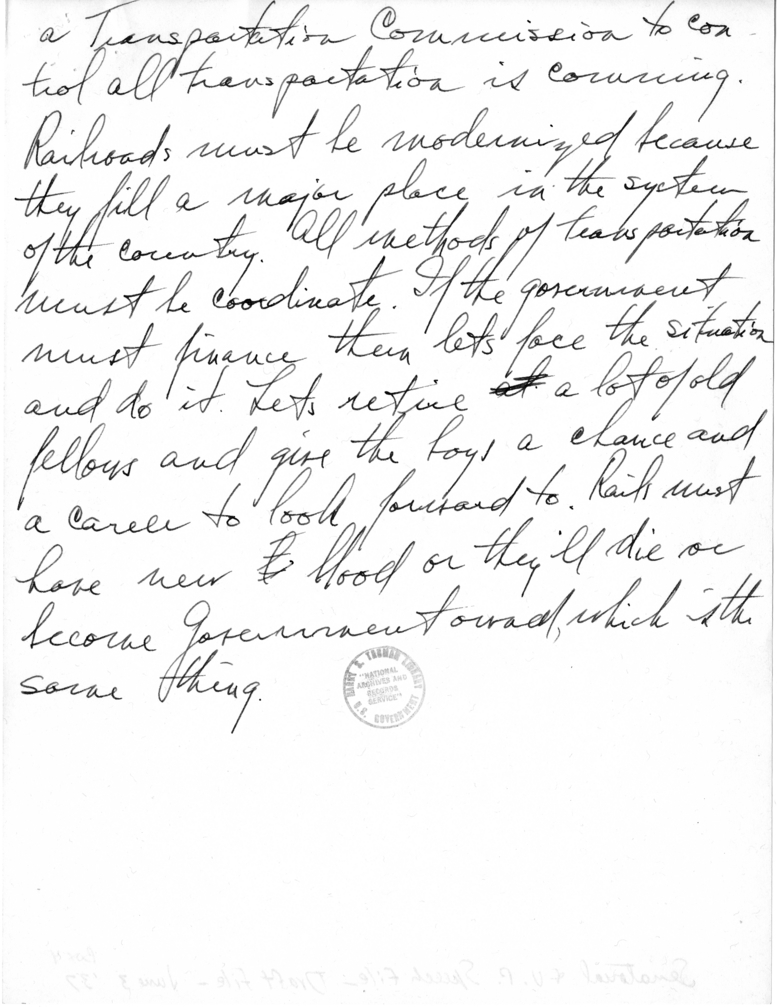 a Transportation Commission to con-
trol all transportation is comming.
Railroads must be modernized because
they fill a major place in the system
of the country. All methods of transportation
must be coordinate. If the government
must finance them lets face the situation
and do it. Lets retire at a lot of old
fellows and give the boys a chance and
a career to look forward to. Rails must
have new b blood or they'll die or
become Government owned, which is the
same thing.
HARRY S. TRUMAN LIBRARY
"NATIONAL
ARCHIVES AND
RECORDS
SERVICE"
U.S. GOVERNMENT
Senatorial & V.P. Speech File - Draft File - June 3 '37